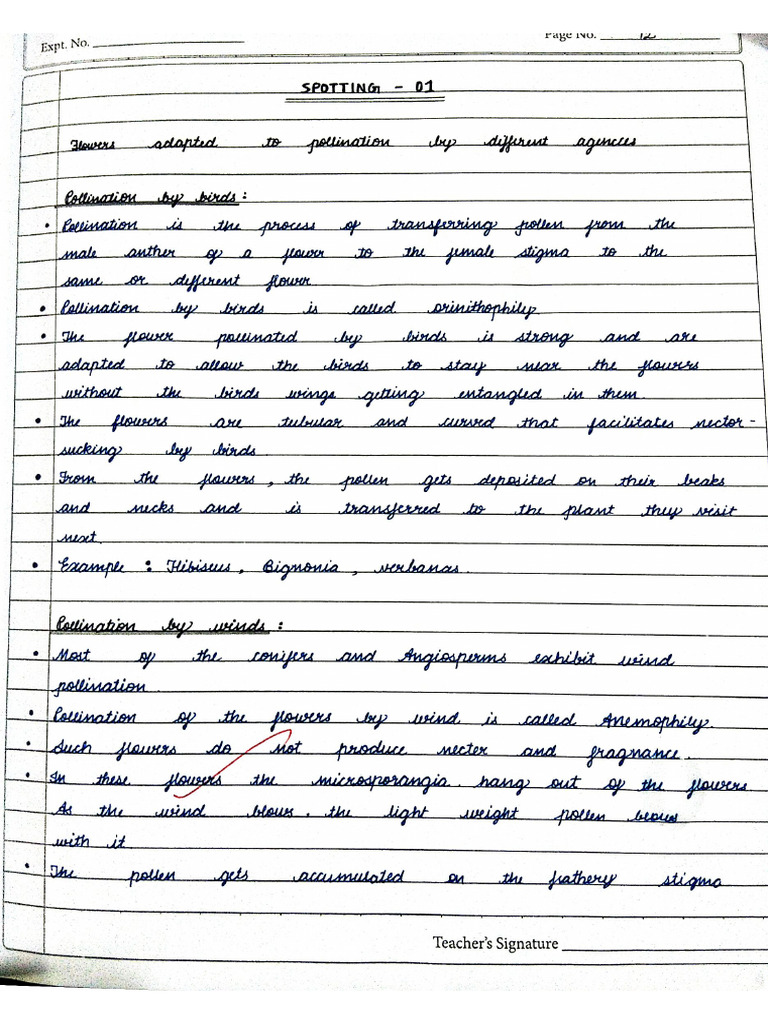 Expt. No.
Page No. 12
SPOTTING - 01
Flowers adapted to pollination by different agencies
Pollination by birds :
• Pollination is the process of transferring pollen from the
male anther of a flower to the female stigma to the
same or different flower
• Pollination by birds is called orinithophily.
• The flower pollinated by birds is strong and are
adapted to allow the birds to stay near the flowers
without the birds wings getting entangled in them.
• The flowers are tubular and curved that facilitates nector-
sucking by birds.
• From the flowers, the pollen gets deposited on their beaks
and necks and is transferred to the plant they visit
next.
• Example : Hibiscus, Bignonia, verbanas.
Pollination by winds :
• Most of the conifers and Angiosperms exhibit wind
pollination
• Pollination of the flowers by wind is called Anemophily.
• Such flowers do not produce necter and fragnance.
• In these flowers the microsporangia hang out of the flowers
As the wind blows, the light weight pollen blows
with it
• The pollen gets accumulated on the feathery stigma
Teacher's Signature